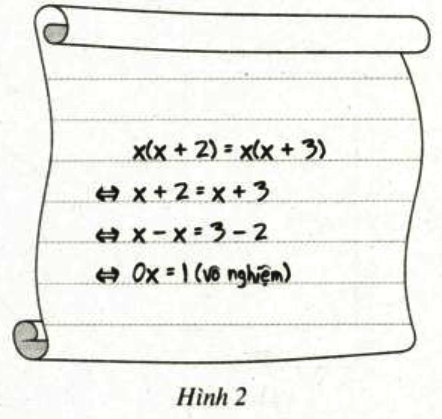 x(x + 2) = x(x + 3)
⇔ x + 2 = x + 3
⇔ x - x = 3 - 2
⇔ 0x = 1 (vô nghiệm)
Hình 2